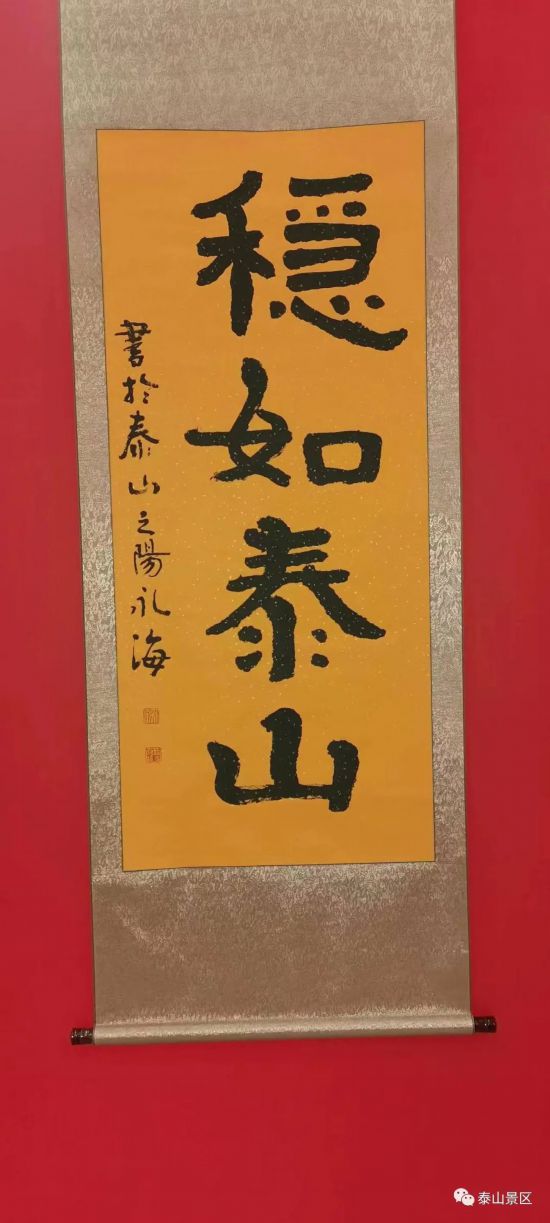 穩如泰山
書於泰山之陽永海
泰山景区